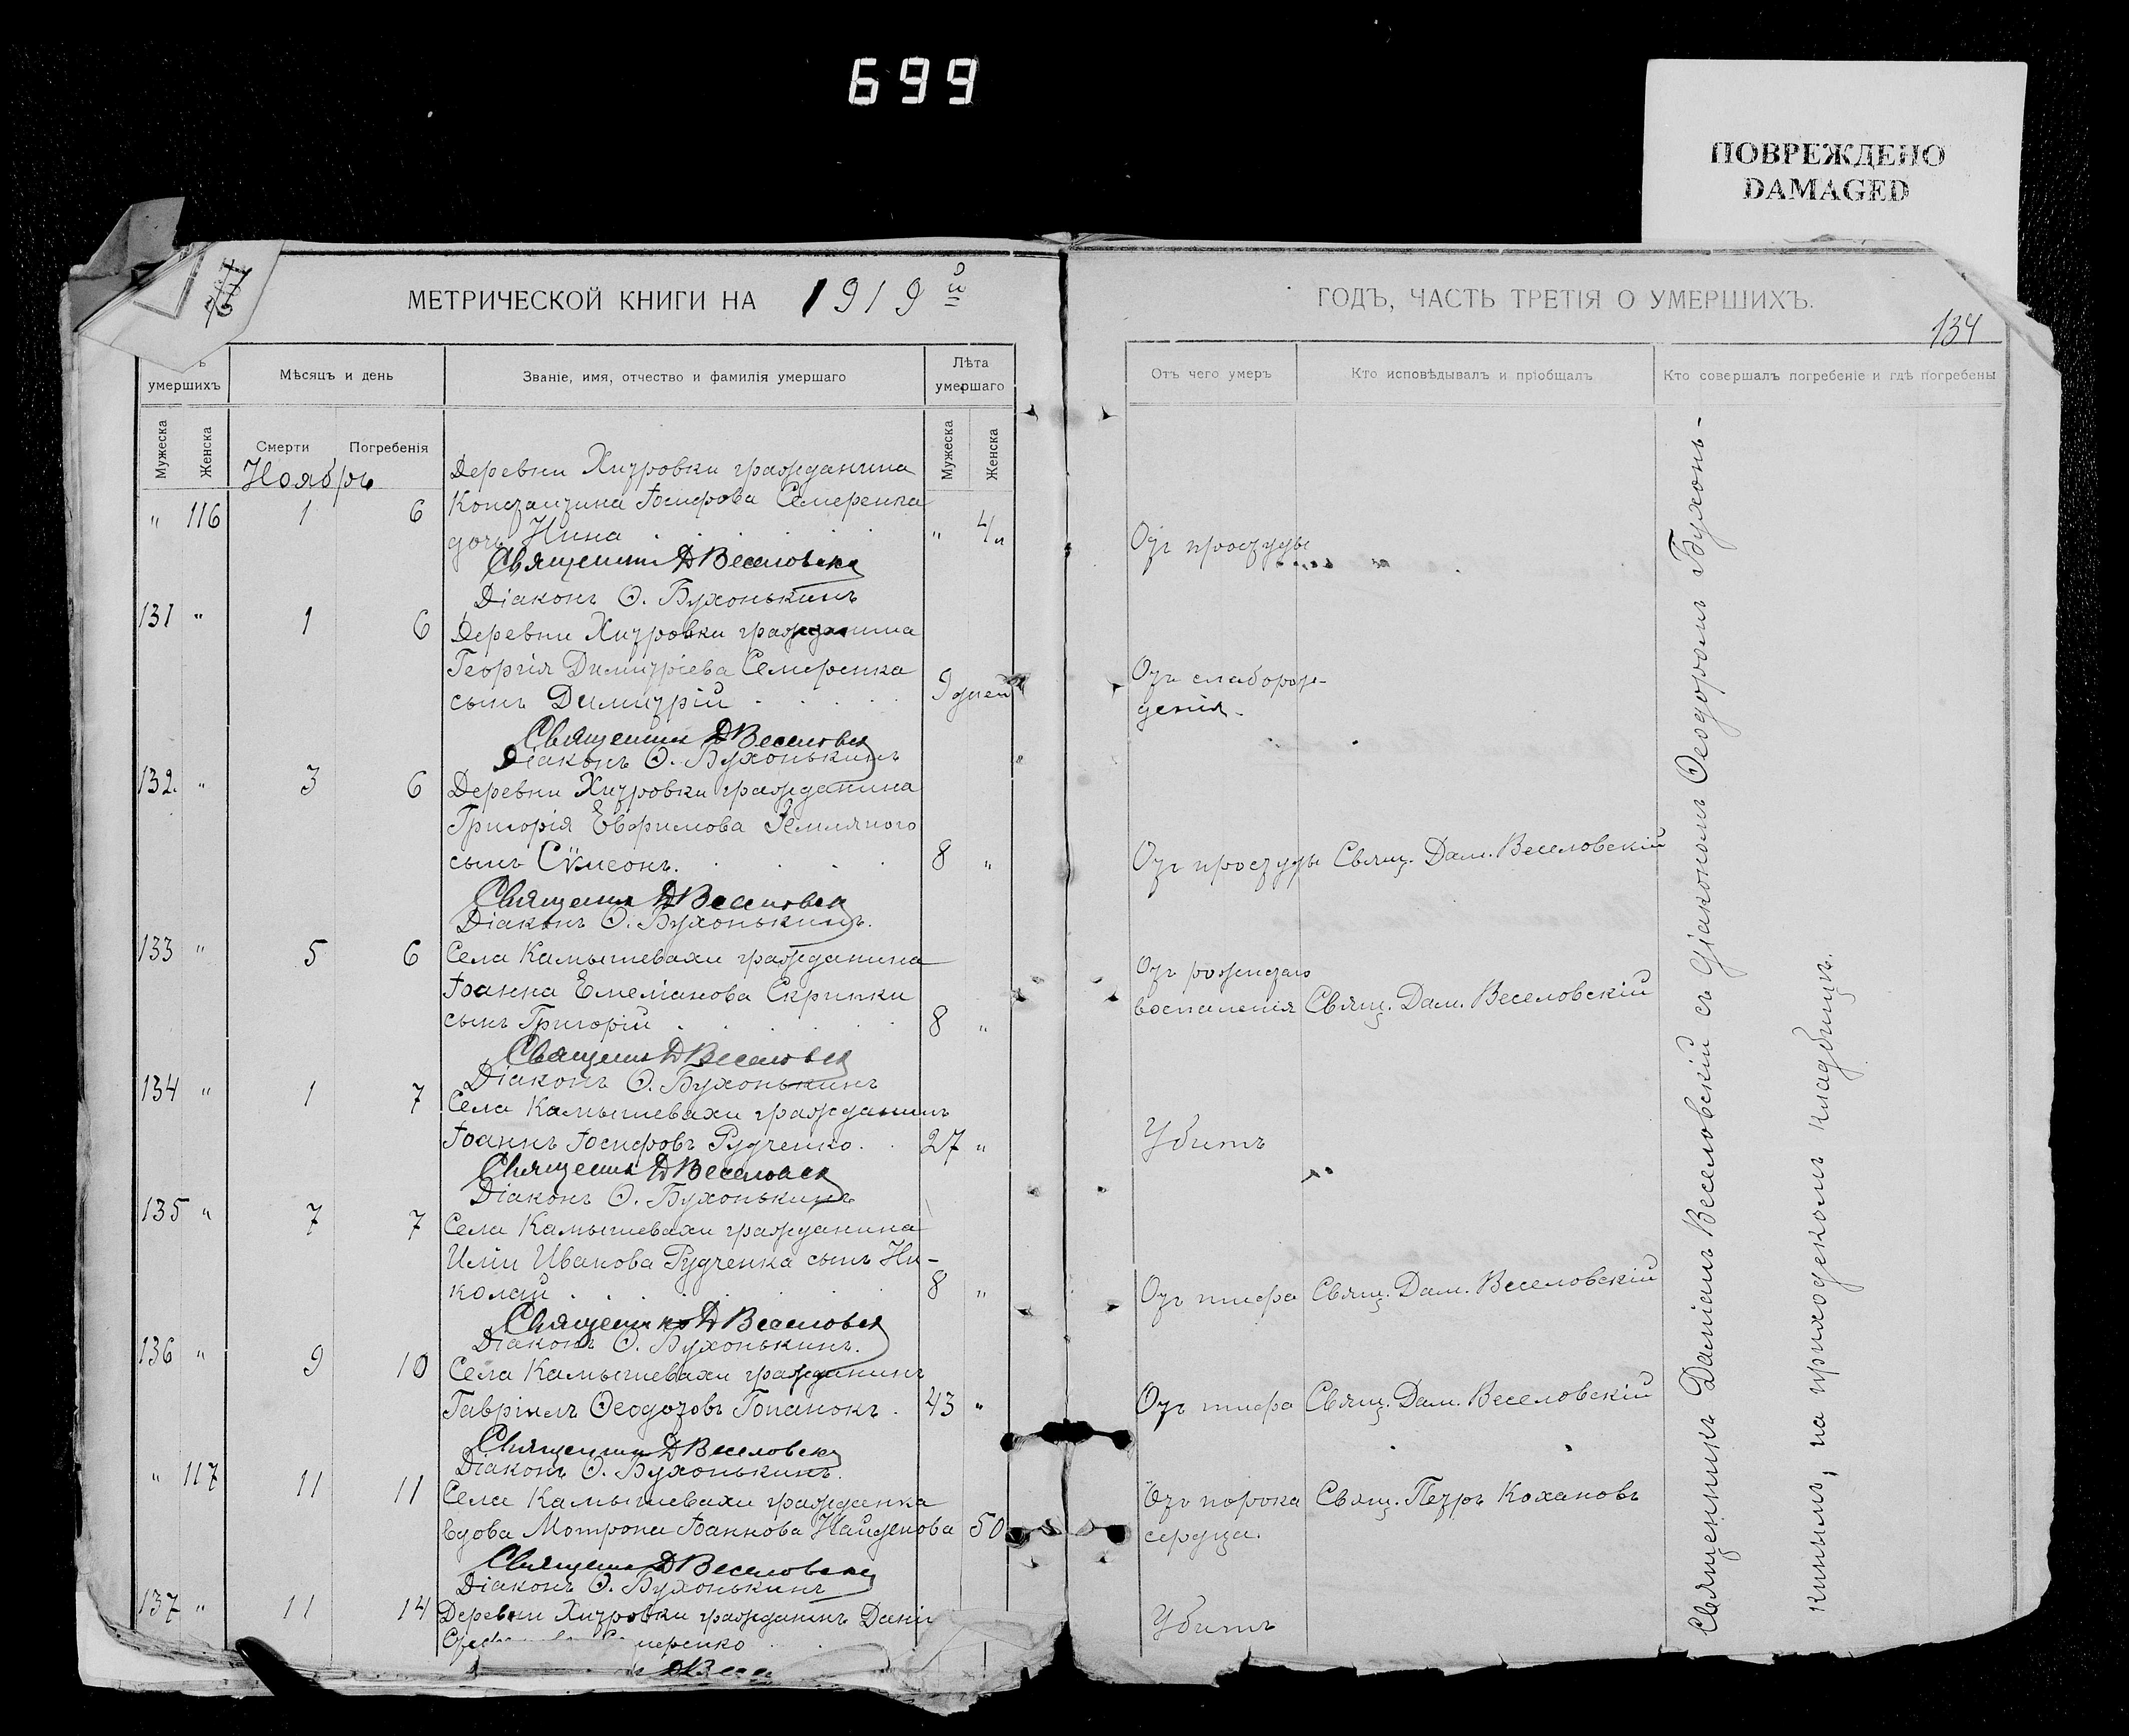 699
ПОВРЕЖДЕНО
DAMAGED
МЕТРИЧЕСКОЙ КНИГИ НА 1919й
ГОДЪ, ЧАСТЬ ТРЕТІЯ О УМЕРШИХЪ.
134
умершихъ
Мѣсяцъ и день
Званіе, имя, отчество и фамилія умершаго
Лѣта умершаго
Отъ чего умеръ
Кто исповѣдывалъ и пріобщалъ
Кто совершалъ погребеніе и гдѣ погребены
Мужеска
Женска
Смерти
Погребенія
Мужеска
Женска
Ноябрь
Деревни Хитровки гражданина
" 116 1 6 Константина Іосифова Семеренка
дочь Нина " 4 Отъ простуды
Священникъ Д Веселовскій
Діаконъ Ѳ. Бухонькинъ
131 " 1 6 Деревни Хитровки гражданина
Георгія Димитріева Семеренка Отъ слаборож-
сынъ Димитрій 9 дней денія.
Священникъ Д Веселовскій
Діаконъ Ѳ. Бухонькинъ
132. " 3 6 Деревни Хитровки гражданина
Григорія Евфимова Земляного
сынъ Сѵмеонъ. 8 " Отъ простуды Свящ. Дам. Веселовскій
Священникъ Д Веселовскій
Діаконъ Ѳ. Бухонькинъ.
133 " 5 6 Села Камышевахи гражданина
Іоанна Емеліанова Скрипки
сынъ Григорій 8 " воспаленія Свящ. Дам. Веселовскій
Священникъ Д Веселовскій
Діаконъ Ѳ. Бухонькинъ
134 " 1 7 Села Камышевахи гражданинъ
Іоаннъ Іосифовъ Рудченко. 27 " Убитъ
Священникъ Д Веселовскій
Діаконъ Ѳ. Бухонькинъ
135 " 7 7 Села Камышевахи гражданина
Иліи Иванова Рудченка сынъ Ни-
колай 8 " Отъ тифа Свящ. Дам. Веселовскій
Священникъ Д Веселовскій
Діаконъ Ѳ. Бухонькинъ.
136 " 9 10 Села Камышевахи гражданинъ
Гавріилъ Ѳеодотовъ 43 " Отъ тифа Свящ. Дам. Веселовскій
Священникъ Д Веселовскій
Діаконъ Ѳ. Бухонькинъ.
" 117 11 11 Села Камышевахи гражданка Отъ порока Свящ. Петръ Кохановъ
вдова Мотрона Іоаннова Найденова 50 сердца.
Священникъ Д Веселовскій
Діаконъ Ѳ. Бухонькинъ
137 " 11 14 Деревни Хитровки гражданинъ Дані Убитъ
Священникъ Даміанъ Веселовскій съ діакономъ Ѳеодоромъ Бухонь-
кинымъ, на приходскомъ кладбищѣ.